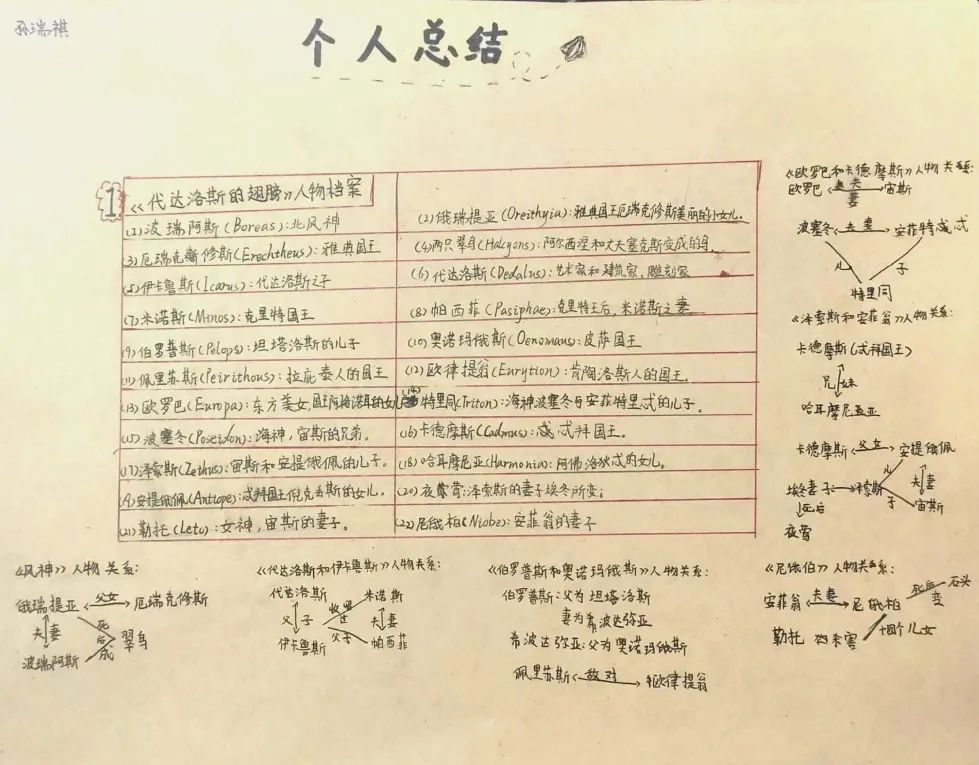 孙瑞祺
个人总结
1 《代达洛斯的翅膀》人物档案
(1)波瑞阿斯(Boreas):北风神
(2)俄瑞提亚(Oreithyia):雅典国王厄瑞克修斯美丽的小女儿。
(3)厄瑞克修斯(Erechtheus):雅典国王
(4)两只翠鸟(Halcyons):阿尔西涅和丈夫塞克斯变成的鸟。
(5)伊卡鲁斯(Icarus):代达洛斯之子
(6)代达洛斯(Dedalus):艺术家和建筑家,雕刻家
(7)米诺斯(Minos):克里特国王
(8)帕西菲(Pasiphae):克里特王后,米诺斯之妻
(9)伯罗普斯(Pelops):坦塔洛斯的儿子
(10)奥诺玛俄斯(Oenomaus):皮萨国王
(11)佩里苏斯(Peirithous):拉庇泰人的国王
(12)欧律提翁(Eurytion):肯陶洛斯人的国王。
(13)欧罗巴(Europa):东方美女,国王阿格诺耳的女儿
(14)特里同(Triton):海神波塞冬与安菲特里忒的儿子。
(15)波塞冬(Poseidon):海神,宙斯的兄弟。
(16)卡德摩斯(Cadmus):忒拜国王。
(17)泽索斯(Zethus):宙斯和安提俄佩的儿子。
(18)哈耳摩尼亚(Harmonia):阿佛洛狄忒的女儿。
(19)安提俄佩(Antiope):忒拜国王倪克丢斯的女儿。
(20)夜莺:泽索斯的妻子埃冬所变;
(21)勒托(Leto):女神,宙斯的妻子。
(22)尼俄柏(Niobe):安菲翁的妻子
《欧罗巴和卡德摩斯》人物关系:
欧罗巴 夫妻 宙斯
波塞冬 夫妻 安菲特忒
儿 子
特里同
《泽索斯和安菲翁》人物关系:
卡德摩斯(忒拜国王)
兄妹
哈耳摩尼亚
卡德摩斯 父女 安提俄佩
儿
夫妻
妻子 泽索斯 子 宙斯
死后
夜莺
《风神》人物关系:
俄瑞提亚 父女 厄瑞克修斯
夫妻 死后成 翠鸟
波瑞阿斯
《代达洛斯和伊卡鲁斯》人物关系:
代达洛斯 米诺斯
父子 夫妻
伊卡鲁斯 父子 帕西菲
《伯罗普斯和奥诺玛俄斯》人物关系:
伯罗普斯:父为坦塔洛斯
妻为希波达弥亚
希波达弥亚:父为奥诺玛俄斯
佩里苏斯 敌对 欧律提翁
《尼俄伯》人物关系:
安菲翁 夫妻 尼俄柏 死后变 石头
勒托 个儿女